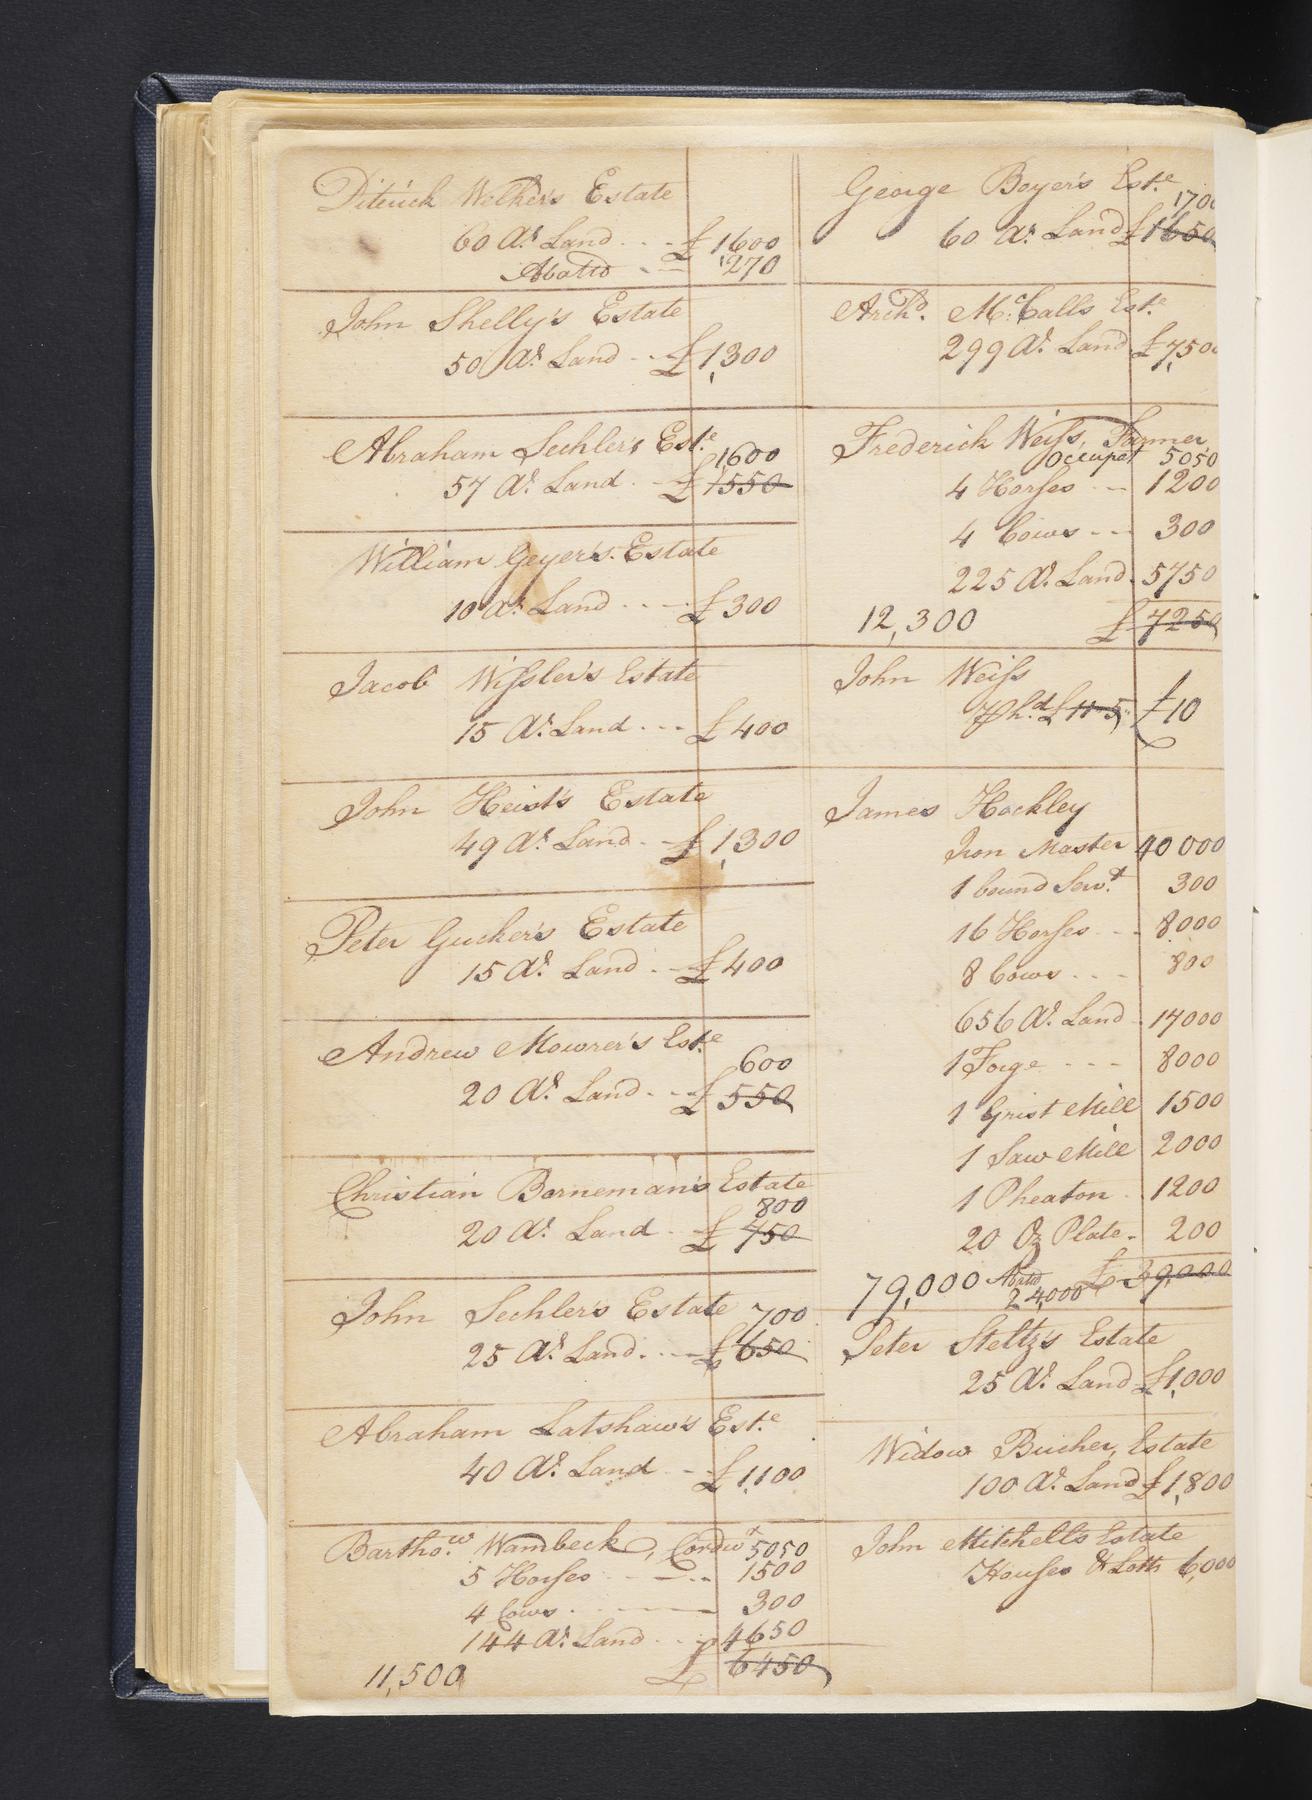 Diterich Welker's Estate
60 As. Land - - - £ 1600
Abattd - - 270
John Shelly's Estate
50 As. Land - - £ 1,300
Abraham Sechler's Este.
1600
57 As. Land - £ 1550
William Geyer's Estate
10 As. Land - - - £ 300
Jacob Wissler's Estate
15 As. Land - - - £ 400
John Heist's Estate
49 As. Land - £ 1,300
Peter Gucker's Estate
15 As. Land - - £ 400
Andrew Mowrer's Este.
600
20 As. Land - - £ 550
Christian Borneman's Estate
800
20 As. Land - £ 750
John Sechler's Estate 700
25 As. Land - - - £ 650
Abraham Latshaw's Este.
40 As. Land - £ 1,100
Barthow. Wambeck, Cordwr 5050
5 Horses - - - 1500
4 Cows - - - 300
144 As. Land - - 4650
11,500 £ 6450
George Boyer's Este.
1700
60 As. Land £ 1650
Archd. McCalls Este.
299 As. Land £ 7,500
Frederick Weiss, Farmer
Occupat 5050
4 Horses - - 1200
4 Cows - - - 300
225 As. Land - 5750
12,300 £ 7250
John Weiss
£ 11-5 £ 10
James Hockley
Iron Master 40000
1 bound Servt. 300
16 Horses - - - 8000
8 Cows - - - 800
656 As. Land - 17000
1 Forge - - - 8000
1 Grist Mill 1500
1 Saw Mill 2000
1 Pheaton - 1200
20 Oz Plate - 200
79,000 Abattd 24,000 £ 39,000
Peter Steltz's Estate
25 As. Land £ 1,000
Widow Bucher, Estate
100 As. Land £ 1,800
John Mitchells Estate
Houses & Lotts 6,000